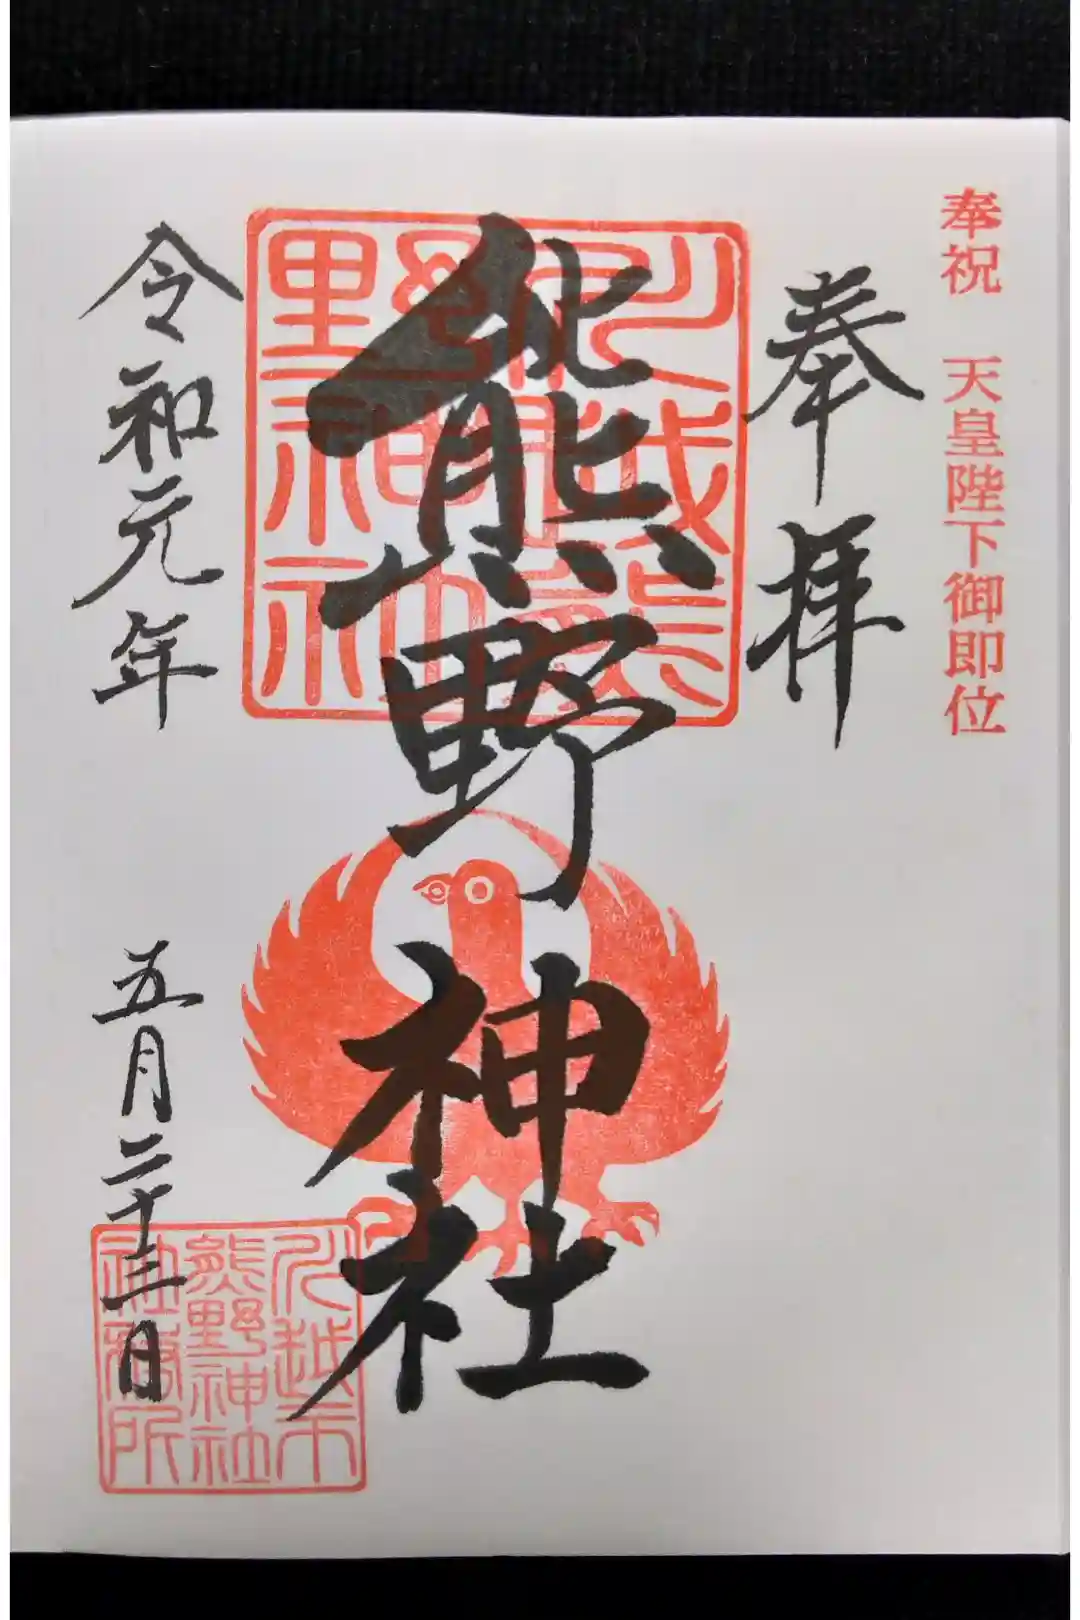 奉祝 天皇陛下御即位
奉拝
川越熊野神社
熊野神社
令和元年 五月二十三日
川越市
熊野神社
社務所